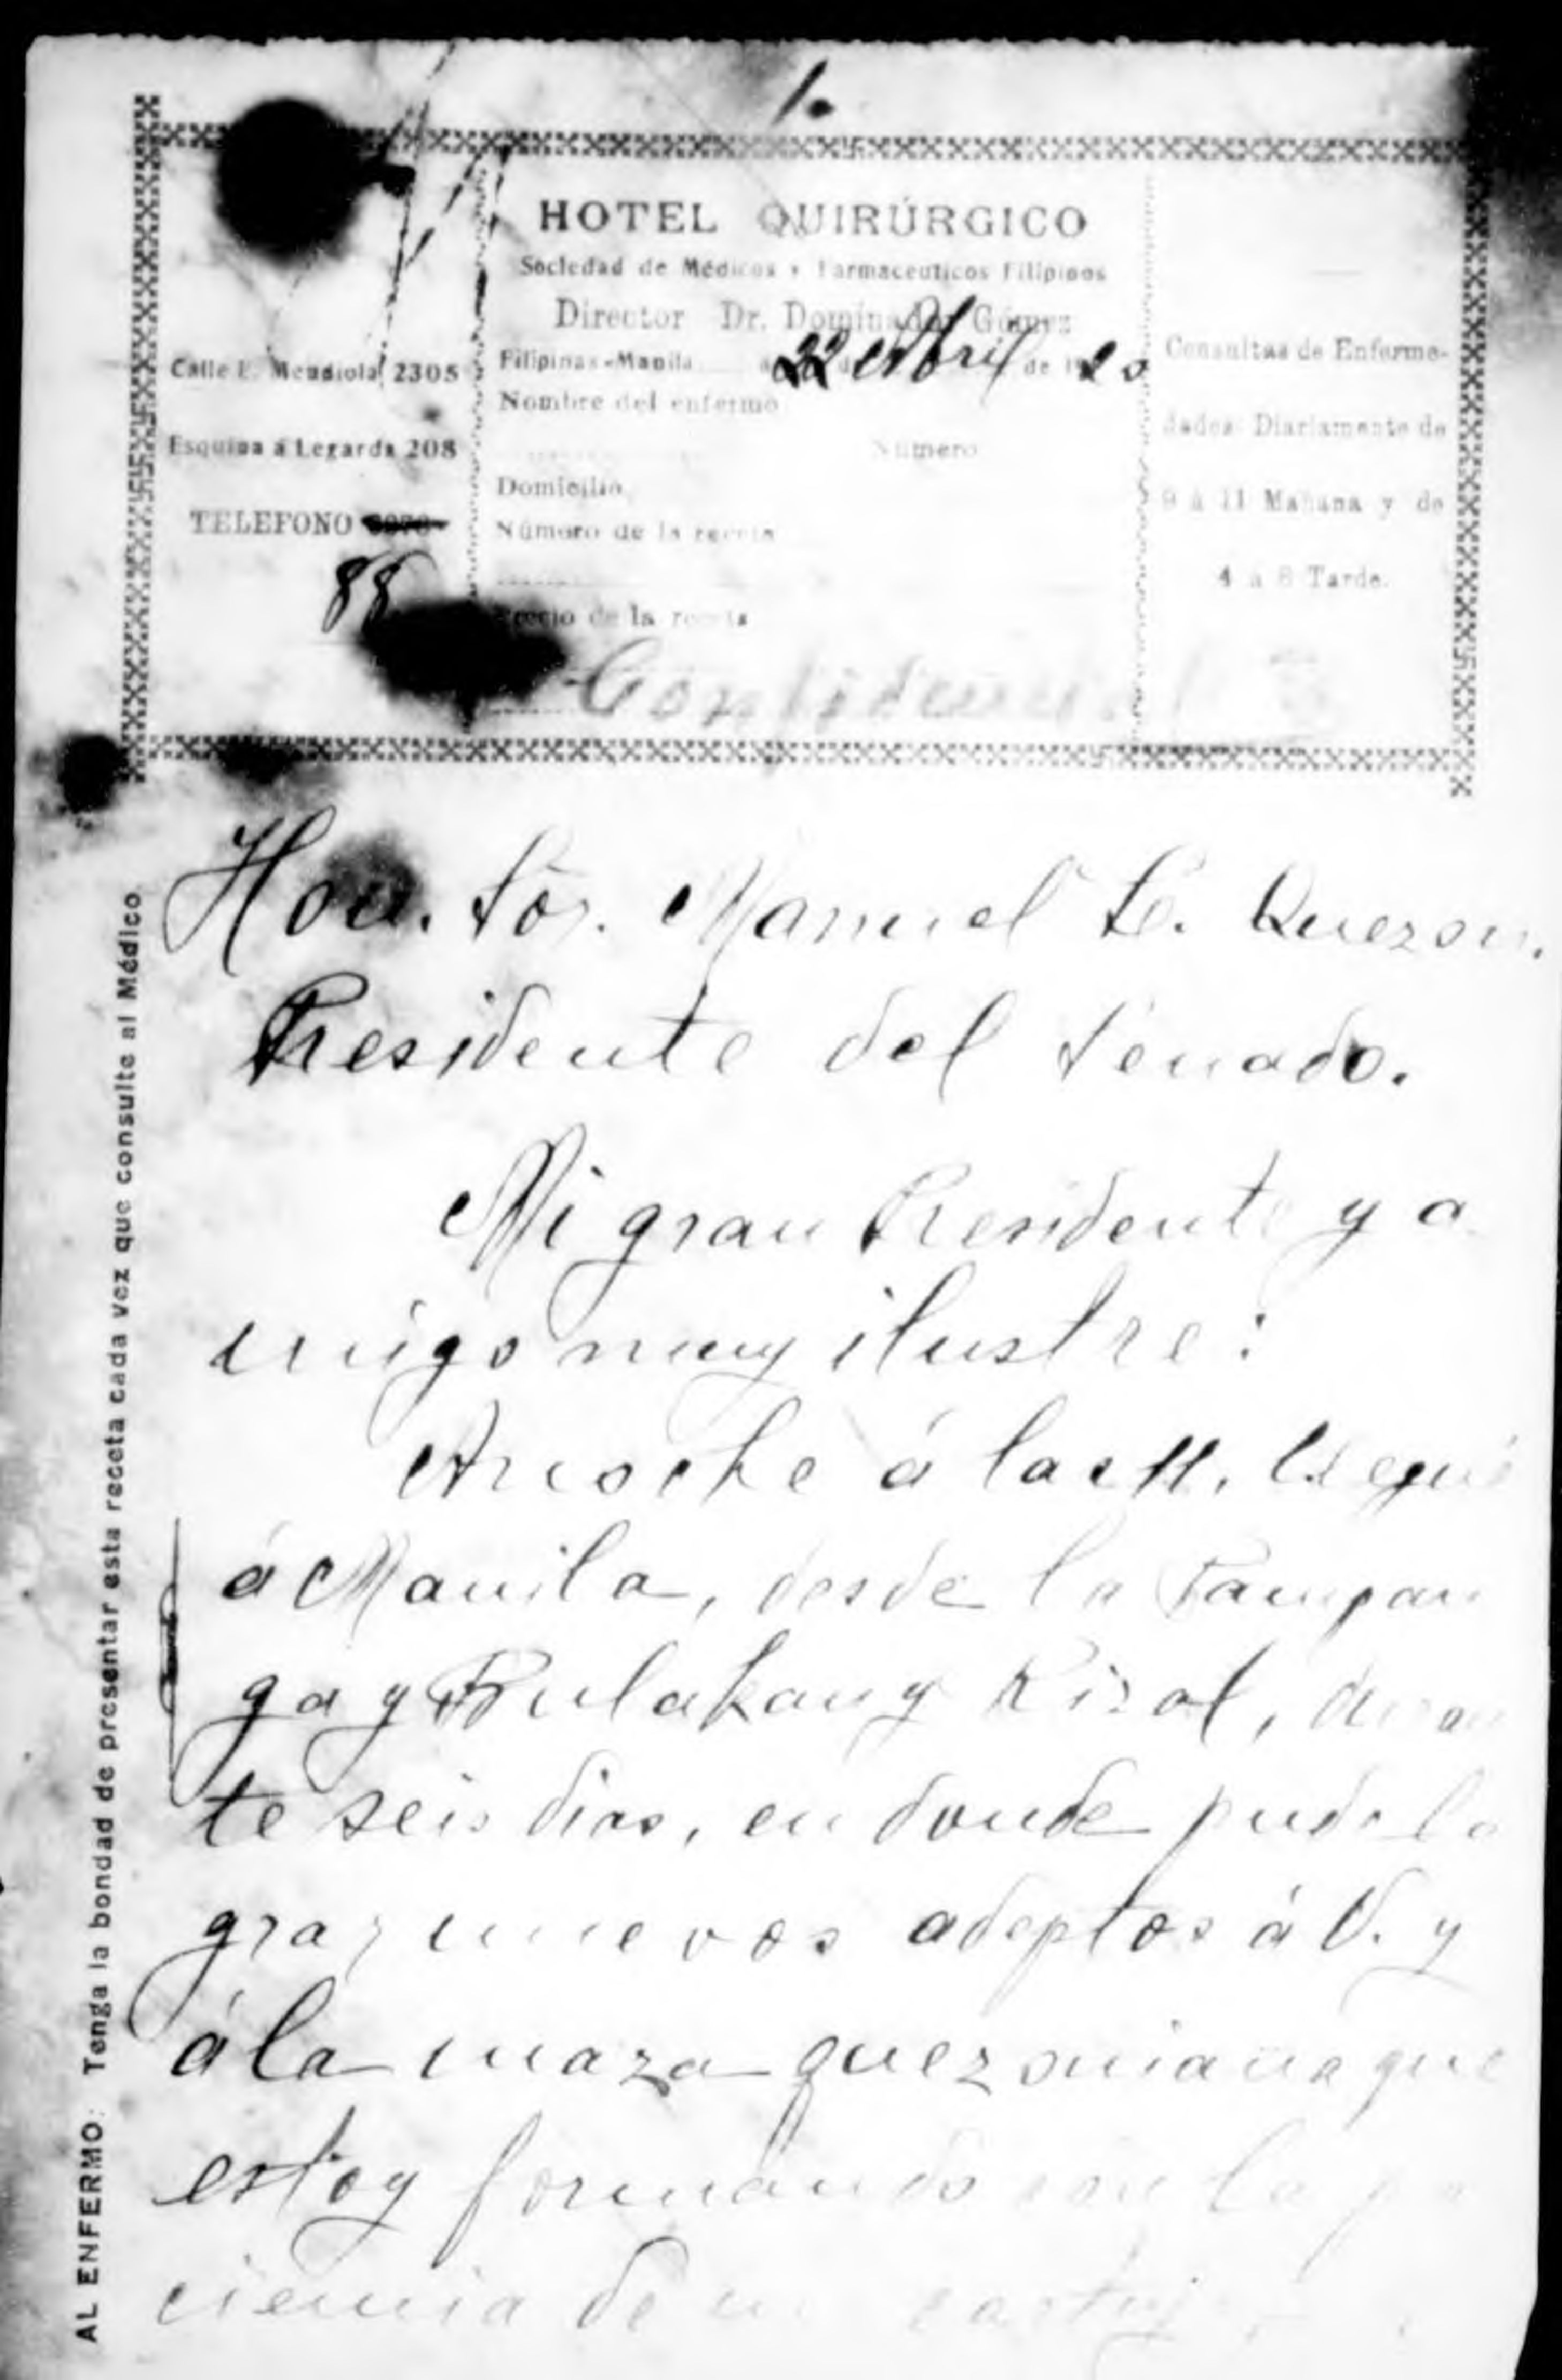 1.
HOTEL QUIRÚRGICO
Sociedad de Médicos y Farmaceuticos Filipinos
Director Dr. Dominador Gómez
Filipinas-Manila a 22 de Abril de 1920
Nombre del enfermo
Número
Domicilio
Número de la receta
Precio de la receta
Confidencial
Calle L. Mendiola 2305
Esquina a Legarda 208
TELEFONO
88
Consultas de Enferme-
dades Diariamente de
9 a 11 Mañana y de
4 a 8 Tarde.
AL ENFERMO: Tenga la bondad de presentar esta receta cada vez que consulte al Médico
Hon. Sor. Manuel L. Quezon.
Presidente del Senado.
Mi gran Presidente y a
migo muy ilustre:
Anoche á las 11, llegué
á Manila, desde la Pampan
ga y Bulakan y Rizal, duran
te seis dias, en donde pude lo
grar nuevos adeptos á V. y
á la maza quezoniana que
estoy formando con la pa
ciencia de un